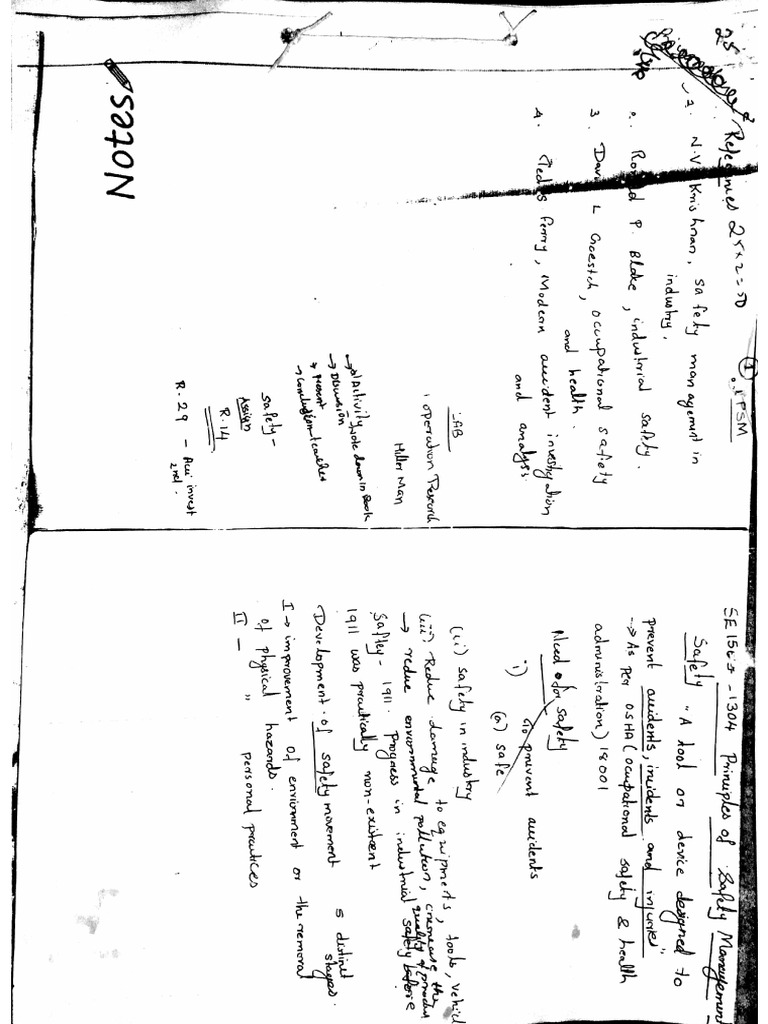 25
25 x 2 = 50
① PSM
References
N.V. Krishnan, safety management in
industry,
2. Ronald P. Blake, industrial safety.
3. David L Goestch, occupational safety
and health.
4. Ted s Ferry, Modern accident investigation
and analysis
LAB
operation Research
Hiller Man
→ Activity note down in Book
→ Discussion
→ Present
→ Conclusion - teacher
Safety -
Assign
R.14
R.29 - Acci invest
Notes
- 1304 Principles of Safety Management
Safety "A tool or device designed to
prevent accidents, incidents and injuries"
→ As per OSHA (occupational safety & health
administration) 18001
Need for safety
i) To prevent accidents
(a) safe
(ii) safety in industry
(iii) Reduce damage to equipments, tools, vehicl
→ redue environmental pollution, increase the
quality of produ
Saftey - 1911. progress in industrial safety before
1911 was practically non-existent
Development of safety movement 5 distint
stages.
I → improvement of enviornment or the removal
of physical hazards.
II - " personal practices